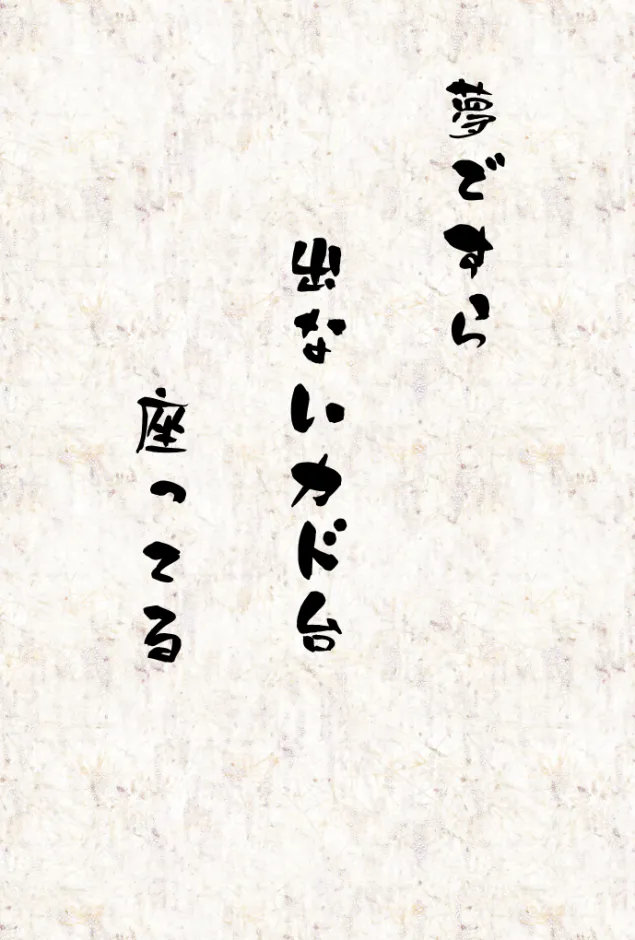 夢ですら
出ないカド台
座ってる